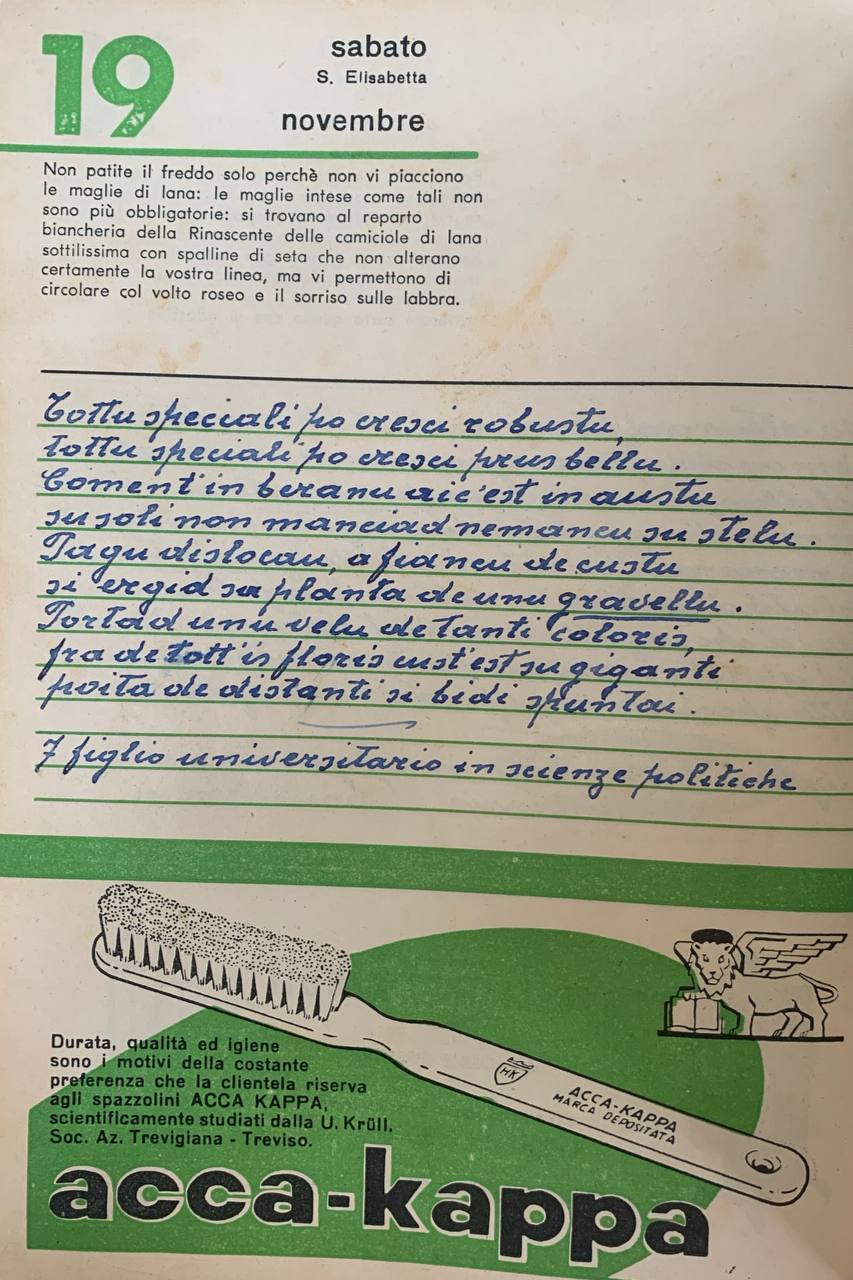 19
sabato
S. Elisabetta
novembre
Non patite il freddo solo perchè non vi piacciono
le maglie di lana: le maglie intese come tali non
sono più obbligatorie: si trovano al reparto
biancheria della Rinascente delle camiciole di lana
sottilissima con spalline di seta che non alterano
certamente la vostra linea, ma vi permettono di
circolare col volto roseo e il sorriso sulle labbra.
Tottu speciali po cresci robustu,
tottu speciali po cresci prus bellu.
Coment'in beranu aic'est in austu
su soli non manciad nemancu su stelu.
Pagu dislocau, a fiancu de custu
si ergid sa planta de unu gravellu.
Portad unu velu de tanti coloris,
fra de tott'is floris cust'est su giganti
poita de distanti si bidi spuntai.
7 figlio universitario in scienze politiche
Durata, qualità ed igiene
sono i motivi della costante
preferenza che la clientela riserva
agli spazzolini ACCA KAPPA,
scientificamente studiati dalla U. Krüll.
Soc. Az. Trevigiana - Treviso.
HK
ACCA-KAPPA
MARCA DEPOSITATA
acca-kappa